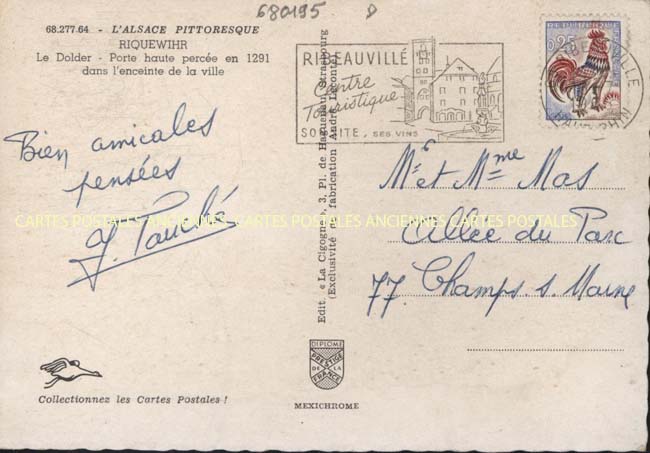 680195 D
68.277.64 - L'ALSACE PITTORESQUE
RIQUEWIHR
Le Dolder - Porte haute percée en 1291
dans l'enceinte de la ville
Bien amicales
pensées
Collectionnez les Cartes Postales !
Edit. « La Cigogne », 3, Pl. de Haguenau, Strasbourg
(Exclusivité de fabrication André Leconte)
DIPLOME
PRESTIGE
DE LA
FRANCE
MEXICHROME
RIBEAUVILLÉ
Centre
Touristique
SON SITE, SES VINS
0,25
Mr et Mme Mas
Allée du Parc
77. Champs. s. Marne
CARTES POSTALES ANCIENNES CARTES POSTALES ANCIENNES CARTES POSTALES